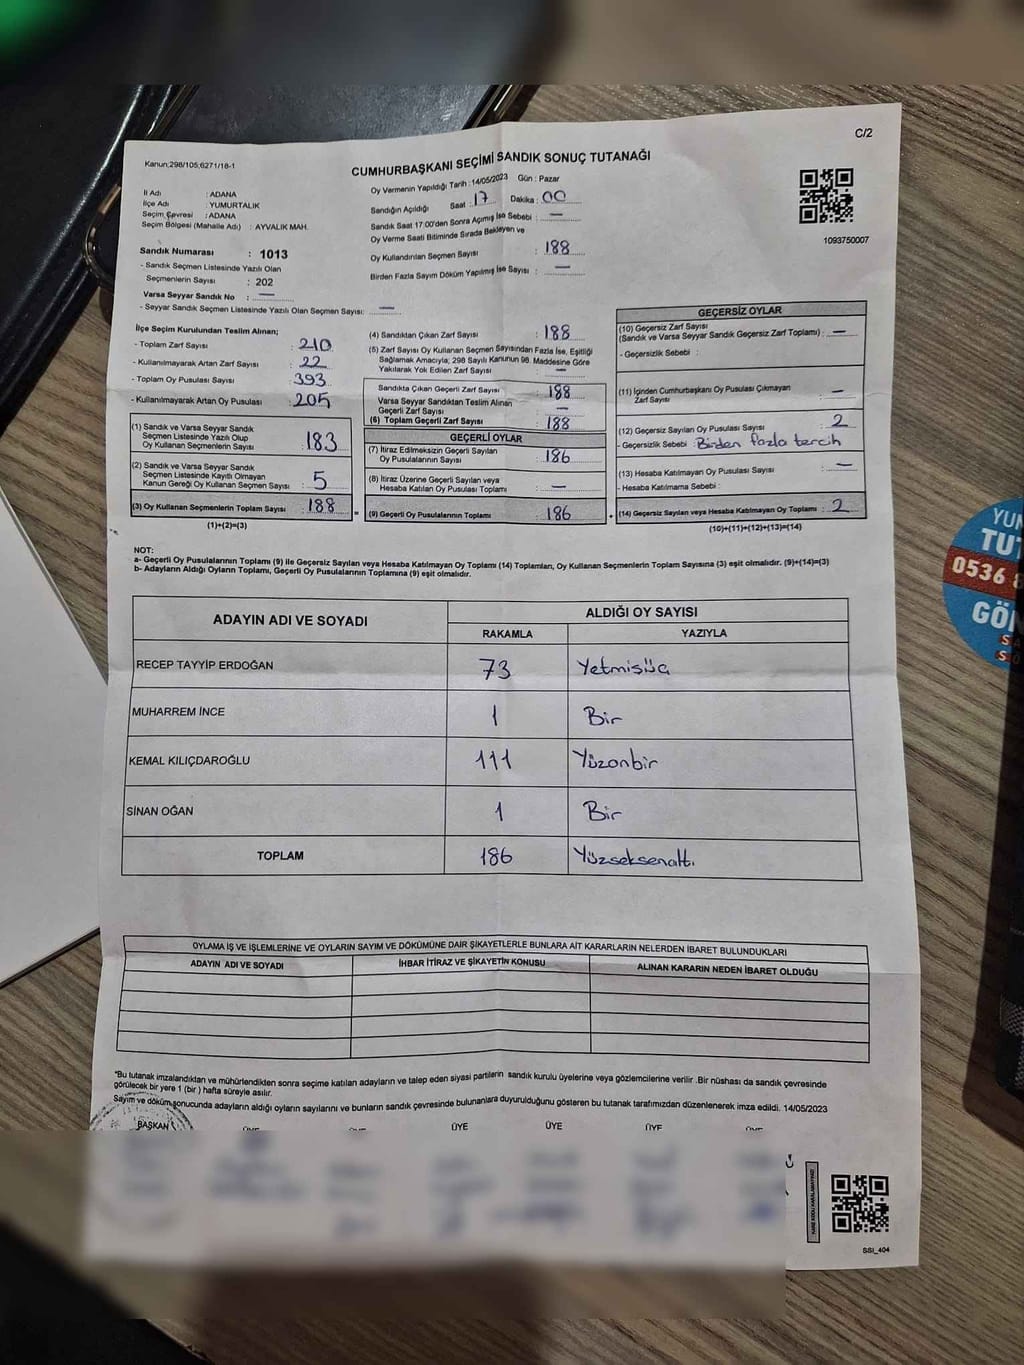 C/2
Kanun;298/105;6271/18-1
CUMHURBAŞKANI SEÇİMİ SANDIK SONUÇ TUTANAĞI
İl Adı : ADANA
İlçe Adı : YUMURTALIK
Seçim Çevresi : ADANA
Seçim Bölgesi (Mahalle Adı) : AYVALIK MAH.
Sandık Numarası : 1013
- Sandık Seçmen Listesinde Yazılı Olan
Seçmenlerin Sayısı : 202
Varsa Seyyar Sandık No : —
- Seyyar Sandık Seçmen Listesinde Yazılı Olan Seçmen Sayısı : —
Oy Vermenin Yapıldığı Tarih : 14/05/2023 Gün : Pazar
Sandığın Açıldığı Saat : 17 Dakika : 00
Sandık Saat 17:00'den Sonra Açımış İse Sebebi : —
Oy Verme Saati Bitiminde Sırada Bekleyen ve
Oy Kullandırılan Seçmen Sayısı : 188
Birden Fazla Sayım Döküm Yapılmış İse Sayısı : —
1093750007
İlçe Seçim Kurulundan Teslim Alınan;
- Toplam Zarf Sayısı : 210
- Kullanılmayarak Artan Zarf Sayısı : 22
- Toplam Oy Pusulası Sayısı : 393
- Kullanılmayarak Artan Oy Pusulası : 205
(1) Sandık ve Varsa Seyyar Sandık
Seçmen Listesinde Yazılı Olup
Oy Kullanan Seçmenlerin Sayısı : 183
(2) Sandık ve Varsa Seyyar Sandık
Seçmen Listesinde Kayıtlı Olmayan
Kanun Gereği Oy Kullanan Seçmen Sayısı : 5
(3) Oy Kullanan Seçmenlerin Toplam Sayısı : 188
(1)+(2)=(3)
(4) Sandıktan Çıkan Zarf Sayısı : 188
(5) Zarf Sayısı Oy Kullanan Seçmen Sayısından Fazla İse, Eşitliği
Sağlamak Amacıyla; 298 Sayılı Kanunun 98. Maddesine Göre
Yakılarak Yok Edilen Zarf Sayısı : —
Sandıkta Çıkan Geçerli Zarf Sayısı : 188
Varsa Seyyar Sandıktan Teslim Alınan
Geçerli Zarf Sayısı : —
(6) Toplam Geçerli Zarf Sayısı : 188
GEÇERLİ OYLAR
(7) İtiraz Edilmeksizin Geçerli Sayılan
Oy Pusulalarının Sayısı : 186
(8) İtiraz Üzerine Geçerli Sayılan veya
Hesaba Katılan Oy Pusulası Toplamı : —
(9) Geçerli Oy Pusulalarının Toplamı : 186
GEÇERSİZ OYLAR
(10) Geçersiz Zarf Sayısı
(Sandık ve Varsa Seyyar Sandık Geçersiz Zarf Toplamı) : —
- Geçersizlik Sebebi :
(11) İçinden Cumhurbaşkanı Oy Pusulası Çıkmayan
Zarf Sayısı : —
(12) Geçersiz Sayılan Oy Pusulası Sayısı : 2
- Geçersizlik Sebebi : Birden fazla tercih
(13) Hesaba Katılmayan Oy Pusulası Sayısı : —
- Hesaba Katılmama Sebebi :
(14) Geçersiz Sayılan veya Hesaba Katılmayan Oy Toplamı : 2
(10)+(11)+(12)+(13)=(14)
NOT:
a- Geçerli Oy Pusulalarının Toplamı (9) ile Geçersiz Sayılan veya Hesaba Katılmayan Oy Toplamı (14) Toplamları, Oy Kullanan Seçmenlerin Toplam Sayısına (3) eşit olmalıdır. (9)+(14)=(3)
b- Adayların Aldığı Oyların Toplamı, Geçerli Oy Pusulalarının Toplamına (9) eşit olmalıdır.
ADAYIN ADI VE SOYADI ALDIĞI OY SAYISI
RAKAMLA YAZIYLA
RECEP TAYYİP ERDOĞAN 73 Yetmişüç
MUHARREM İNCE 1 Bir
KEMAL KILIÇDAROĞLU 111 Yüzonbir
SİNAN OĞAN 1 Bir
TOPLAM 186 Yüzseksenaltı
OYLAMA İŞ VE İŞLEMLERİNE VE OYLARIN SAYIM VE DÖKÜMÜNE DAİR ŞİKAYETLERLE BUNLARA AİT KARARLARIN NELERDEN İBARET BULUNDUKLARI
ADAYIN ADI VE SOYADI İHBAR İTİRAZ VE ŞİKAYETİN KONUSU ALINAN KARARIN NEDEN İBARET OLDUĞU
*Bu tutanak imzalandıktan ve mühürlendikten sonra seçime katılan adayların ve talep eden siyasi partilerin sandık kurulu üyelerine veya gözlemcilerine verilir .Bir nüshası da sandık çevresinde
görülecek bir yere 1 (bir ) hafta süreyle asılır.
Sayım ve döküm sonucunda adayların aldığı oyların sayılarını ve bunların sandık çevresinde bulunanlara duyurulduğunu gösteren bu tutanak tarafımızdan düzenlenerek imza edildi. 14/05/2023
BAŞKAN ÜYE ÜYE ÜYE ÜYE ÜYE ÜYE
SSI_404
YUM
TUT
0536 8
GÖ